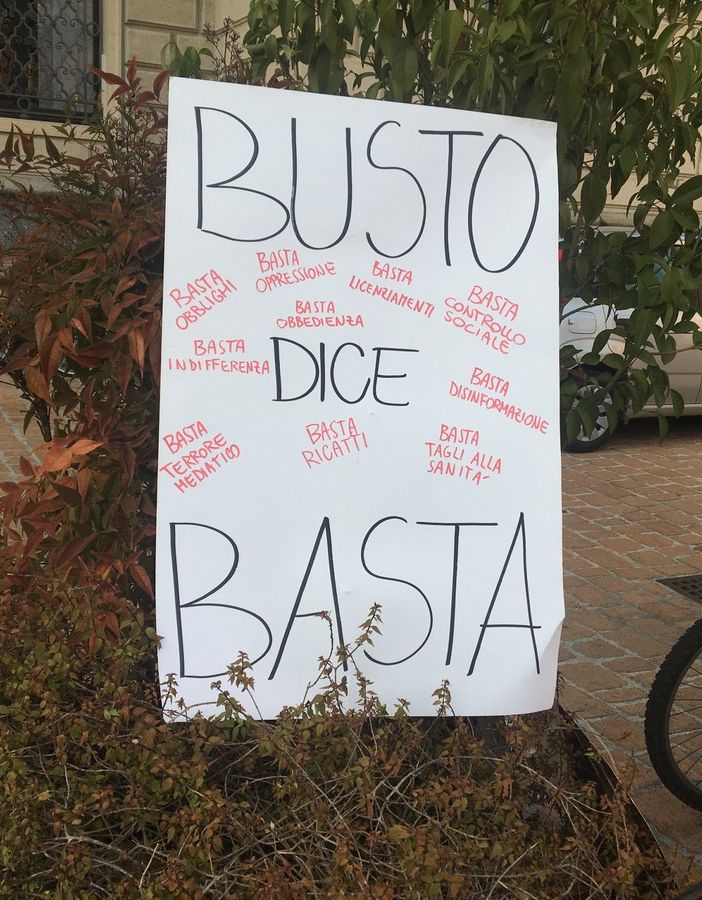 BUSTO
BASTA
OBBLIGHI
BASTA
OPPRESSIONE
BASTA
LICENZIAMENTI
BASTA
CONTROLLO
SOCIALE
BASTA
OBBEDIENZA
BASTA
INDIFFERENZA
DICE
BASTA
DISINFORMAZIONE
BASTA
TERRORE
MEDIATICO
BASTA
RICATTI
BASTA
TAGLI ALLA
SANITÁ
BASTA